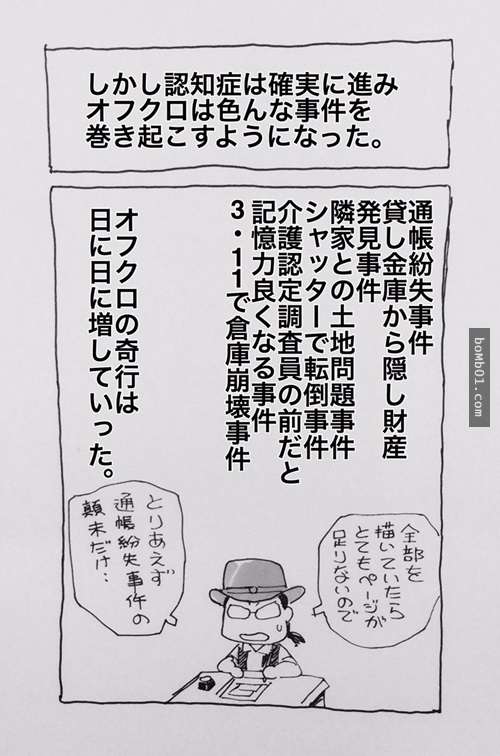 しかし認知症は確実に進み
オフクロは色んな事件を
巻き起こすようになった。
通帳紛失事件
貸し金庫から隠し財産
発見事件
隣家との土地問題事件
シャッターで転倒事件
介護認定調査員の前だと
記憶力良くなる事件
3・11で倉庫崩壊事件
オフクロの奇行は
日に日に増していった。
全部を
描いていたら
とてもページが
足りないので
とりあえず
通帳紛失事件の
顛末だけ…
bomb01.com